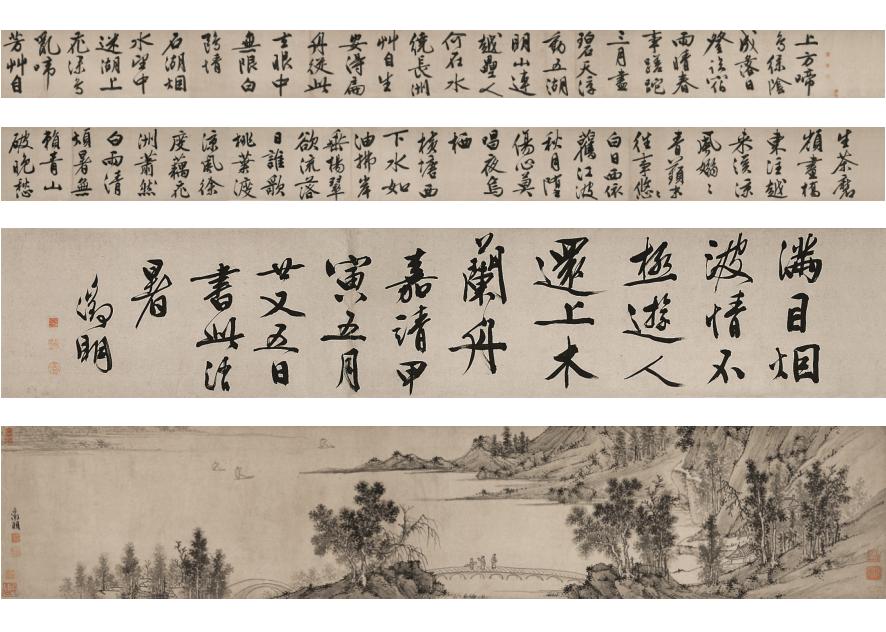 上方啼
鳥綠陰
成落日
登臨宿
雨晴春
事蹉跎
三月盡
碧天浮
動五湖
明山連
越壘人
何在水
繞長洲
艸自生
安得扁
舟從此
去眼中
無限白
鷗情
石湖烟
水望中
迷湖上
花深鳥
亂啼
芳艸自
生茶磨
嶺畫橋
東注越
來溪涼
風嫋〻
青蘋末
往事悠〻
白日西依
舊江波
秋月墮
傷心莫
唱夜烏
栖
橫塘西
下水如
油拂岸
垂楊翠
欲流落
日誰歌
桃葉渡
涼風徐
度藕花
洲蕭然
白雨清
煩暑無
賴青山
破晚愁
滿目烟
波情不
極遊人
還上木
蘭舟
嘉靖甲
寅五月
廿又五日
書此
暑
徵明
徵明